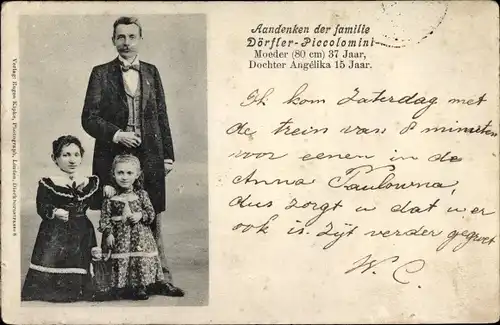 Aandenken der familie
Dörfler-Piccolomini
Moeder (80 cm) 37 Jaar,
Dochter Angélika 15 Jaar.
Ik kom Zaterdag met
de trein van 8 minuten
voor eenen in de
Anna Paulowna,
dus zorgt u dat u er
ook is. Zijt verder gegroet
W. C.
Verlag: Eugen Küpke, Photograph, Linden,